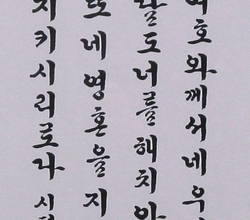 여호와께서 네 우
달도 너를 해치
또 네 영혼을 지
지키시리로다 시